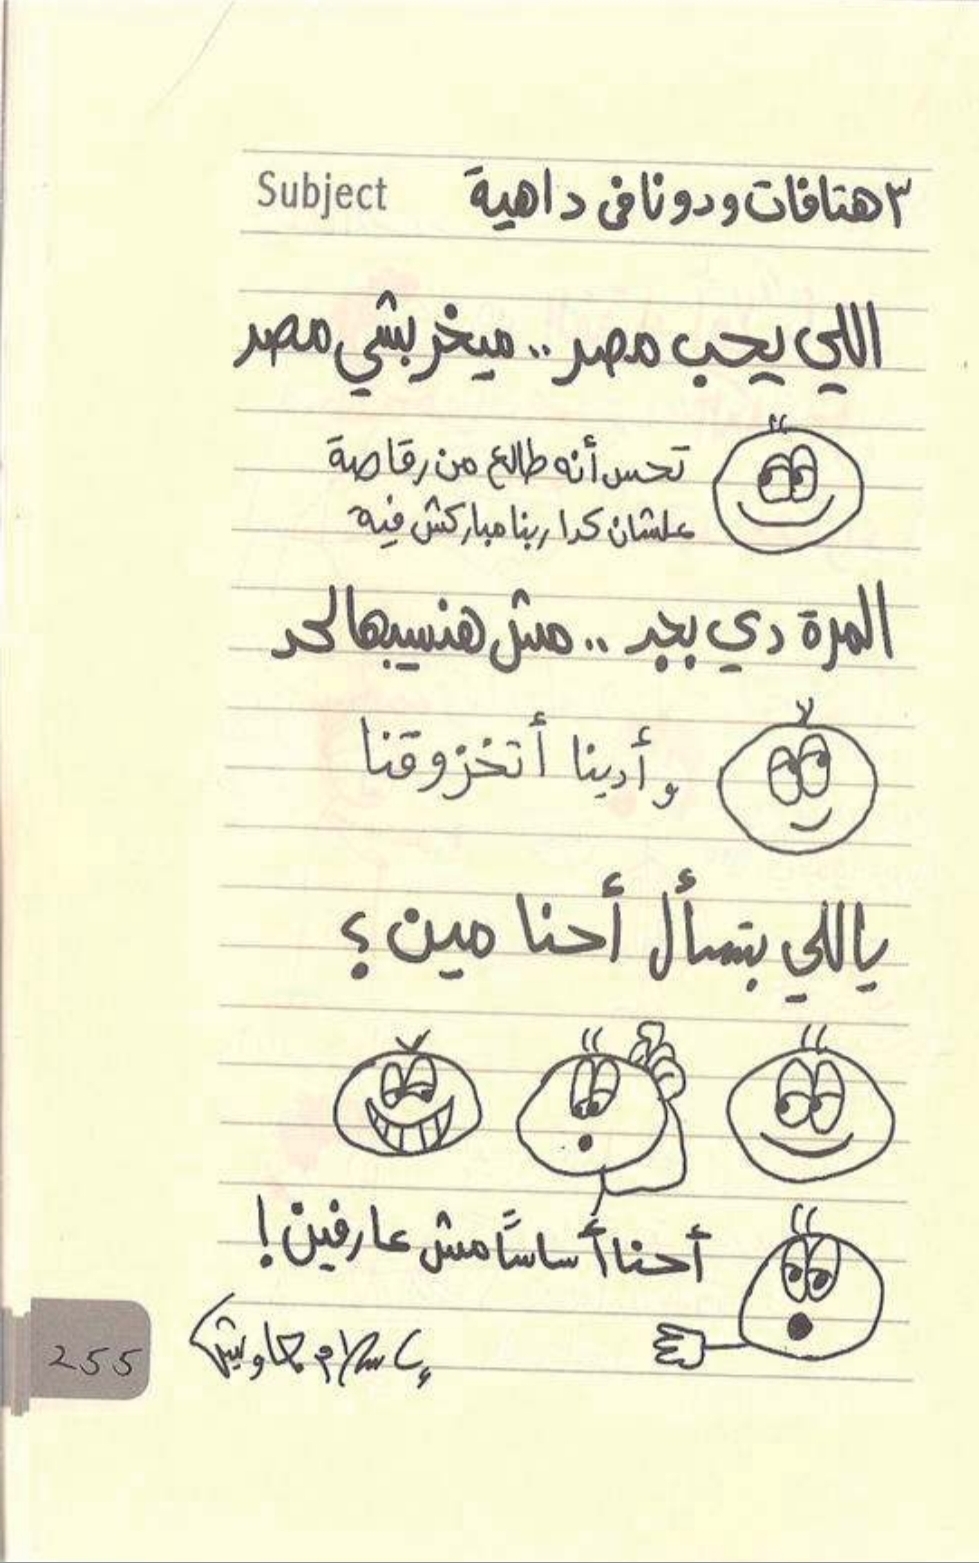 Subject ٣ هتافات ودونا فى داهية
اللي يحب مصر .. ميخربشي مصر
تحس أنه طالع من رقاصة
علشان كدا ربنا مباركش فيه
المرة دي بجد .. مش هنسيبها لحد
وأدينا أتخزوقنا
ياللي بتسأل أحنا مين ؟
أحنا أساساً مش عارفين !
إسلام جاويش
255